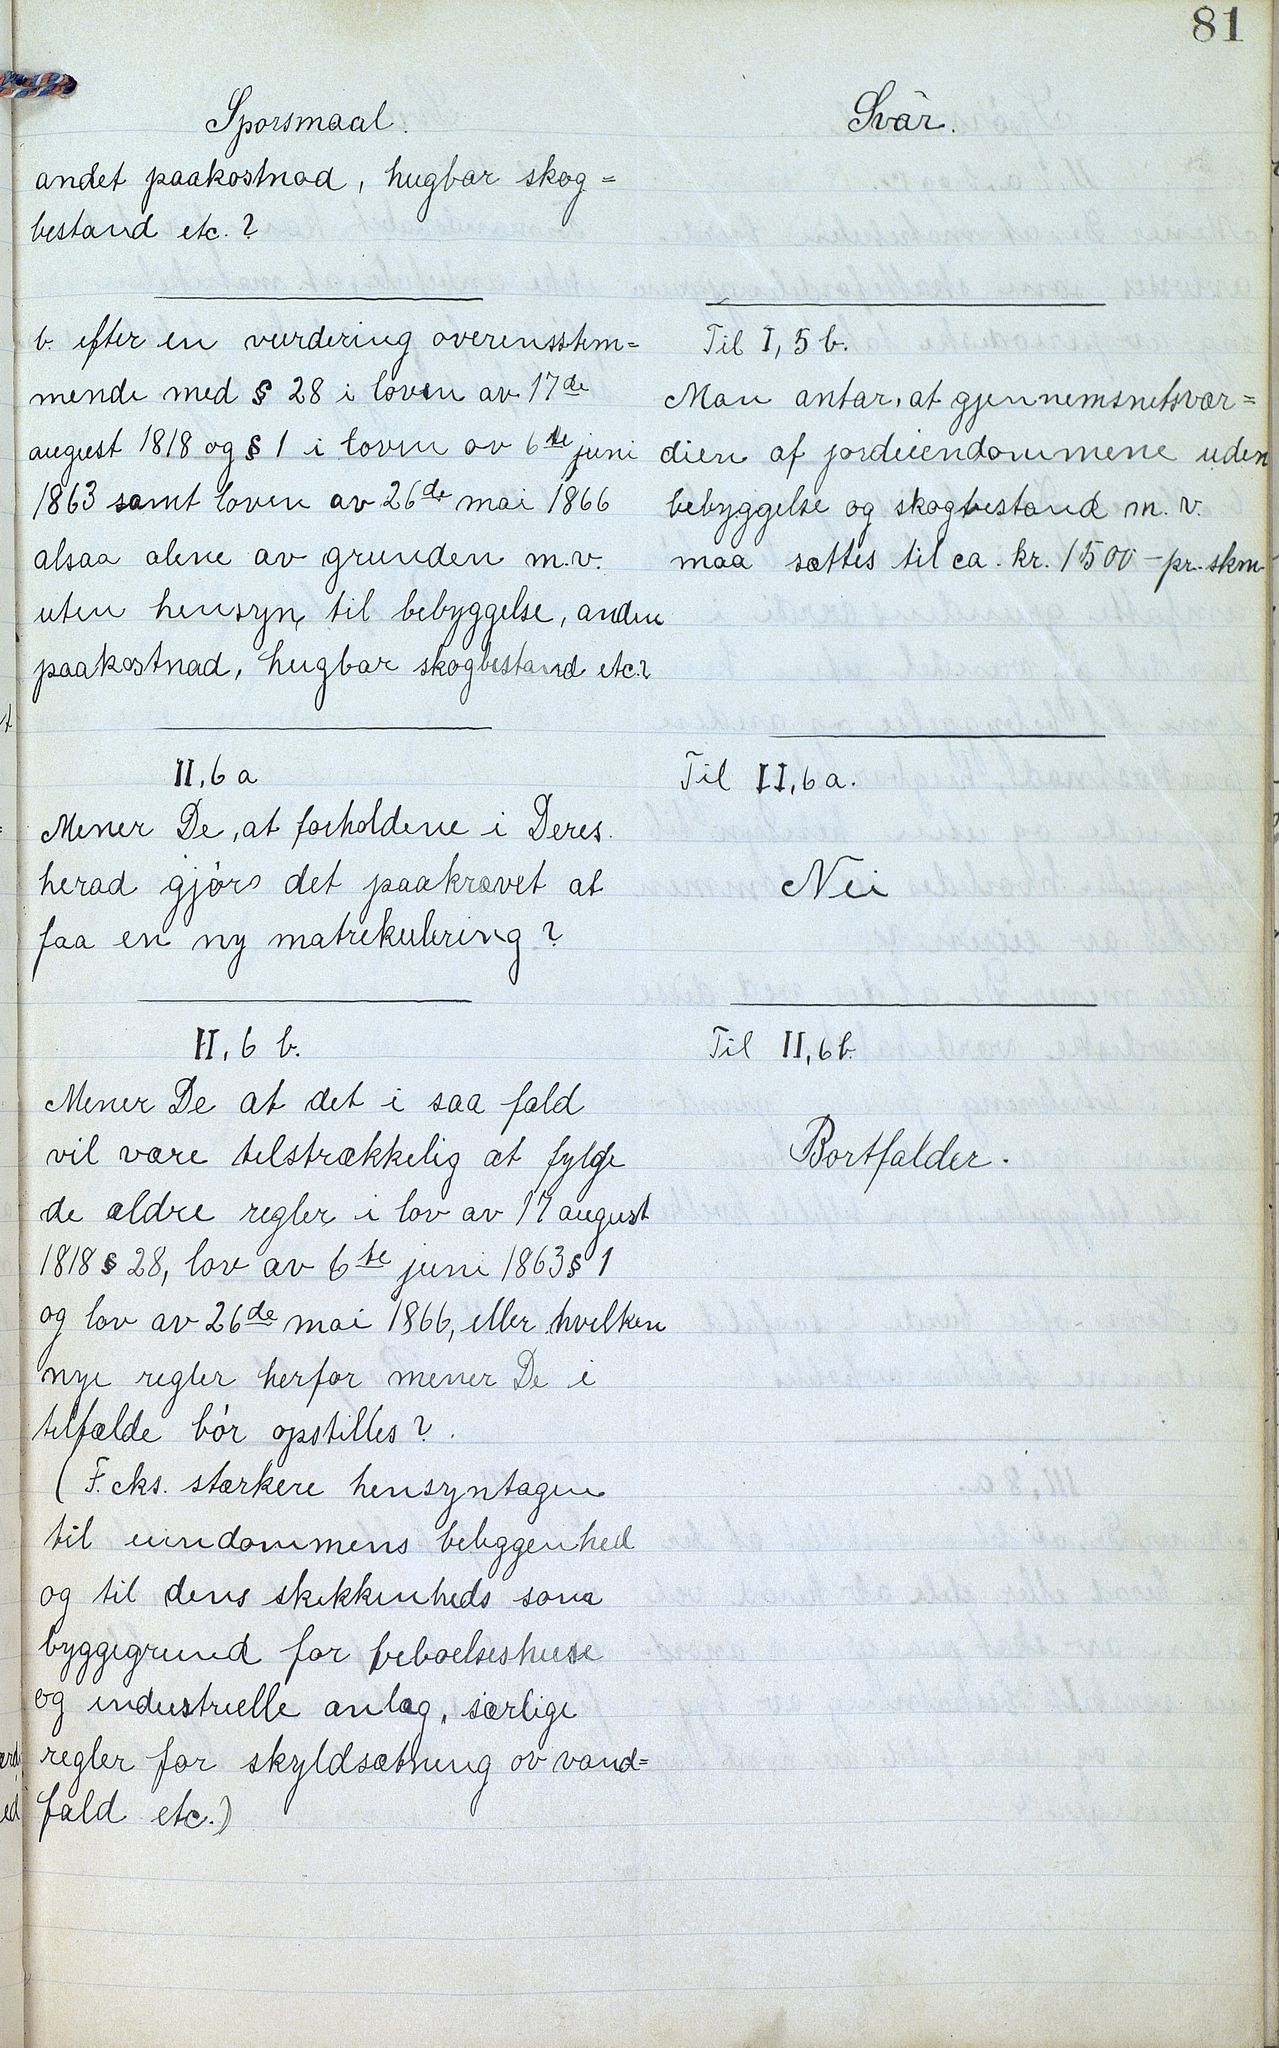 81
Sporsmaal.
andet paakostnad, hugbar skog=
bestand etc.?
b. efter en vurdering overensstem=
mende med § 28 i loven av 17de
august 1818 og § 1 i loven av 6te juni
1863 samt loven av 26de mai 1866
alsaa alene av grunden m.v.
uten hensyn til bebyggelse, anden
paakostnad, hugbar skogbestand etc.?
II, 6 a
Mener De, at forholdene i Deres
herad gjør det paakrævet at
faa en ny matrikulering?
II, 6 b.
Mener De at det i saa fald
vil være tilstrækkelig at følge
de ældre regler i lov av 17 august
1818 § 28, lov av 6te juni 1863 § 1
og lov av 26de mai 1866, eller hvilken
nye regler herfor mener De i
tilfælde bør opstilles?
(F. eks. stærkere hensyntagen
til eiendommens beliggenhed
og til dens skikkenheds som
byggegrund for beboelseshuse
og industrielle anlæg, særlige
regler for skyldsætning ov vand=
fald etc.)
Svar.
Til I, 5 b.
Man antar, at gjennemsnetsvær=
dien af jordeiendommene uden
bebyggelse og skogbestand m. v.
maa sættes til ca. kr. 1500 - pr. skm.
Til II, 6 a.
Nei
Til II, 6 b.
Bortfalder.